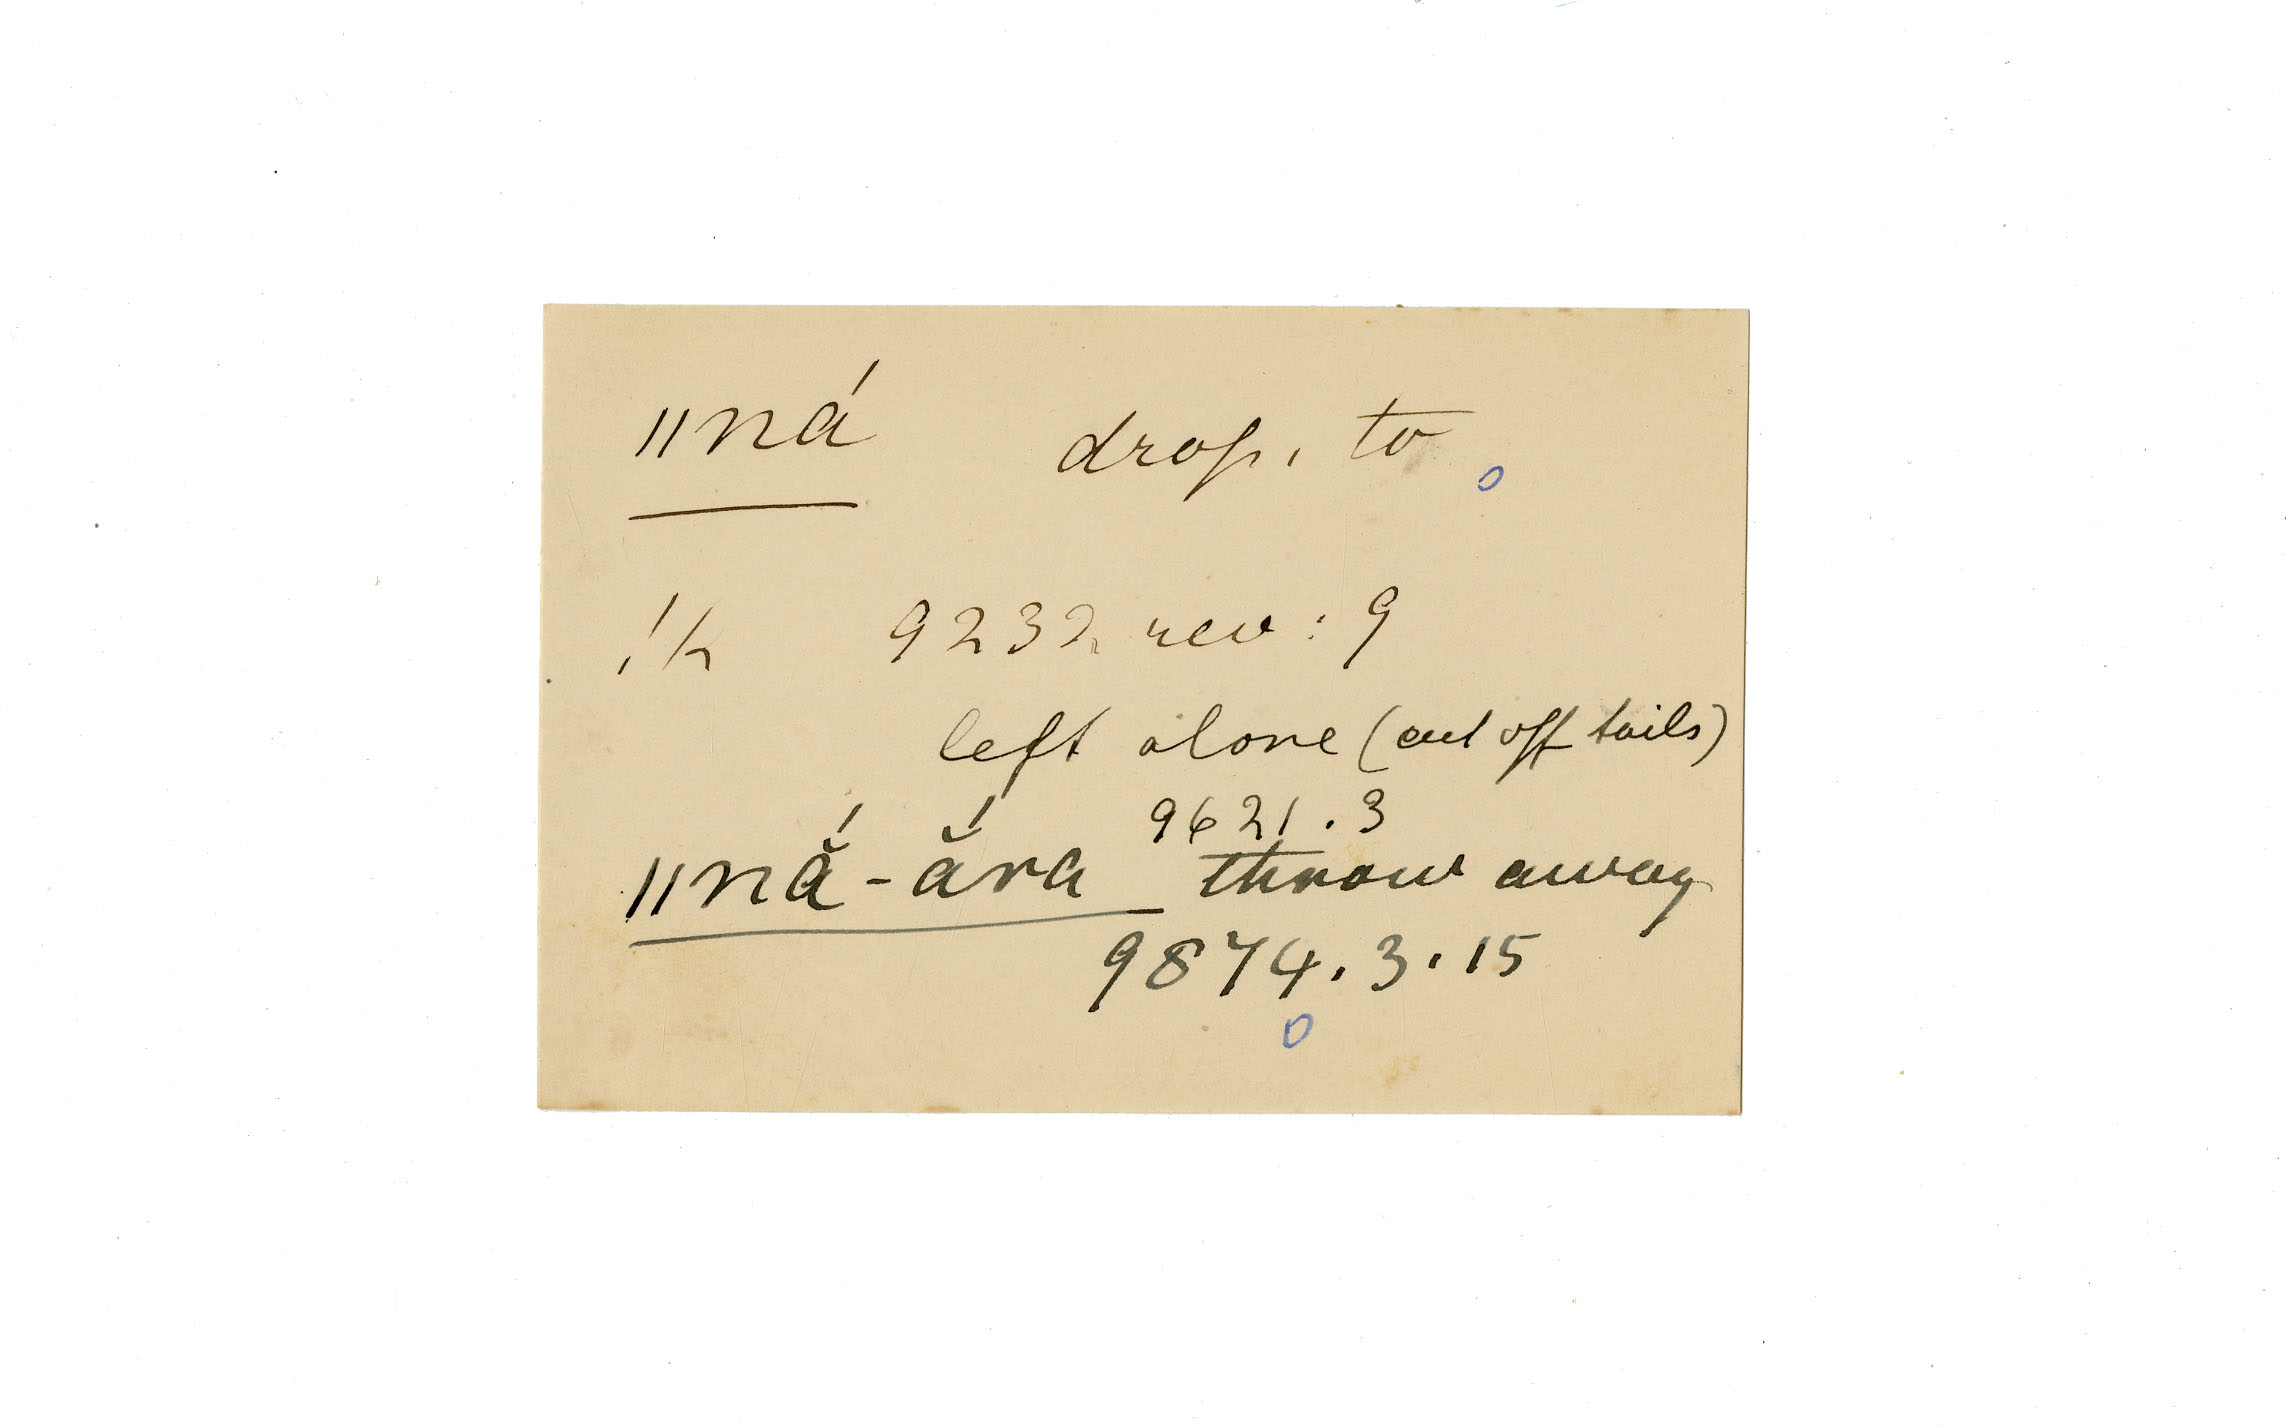 ǁná drop, to
!k 9232 rev: 9
left alone (cut off tails)
9621.3
ǁnắ-ắra throw away
9874.3.15